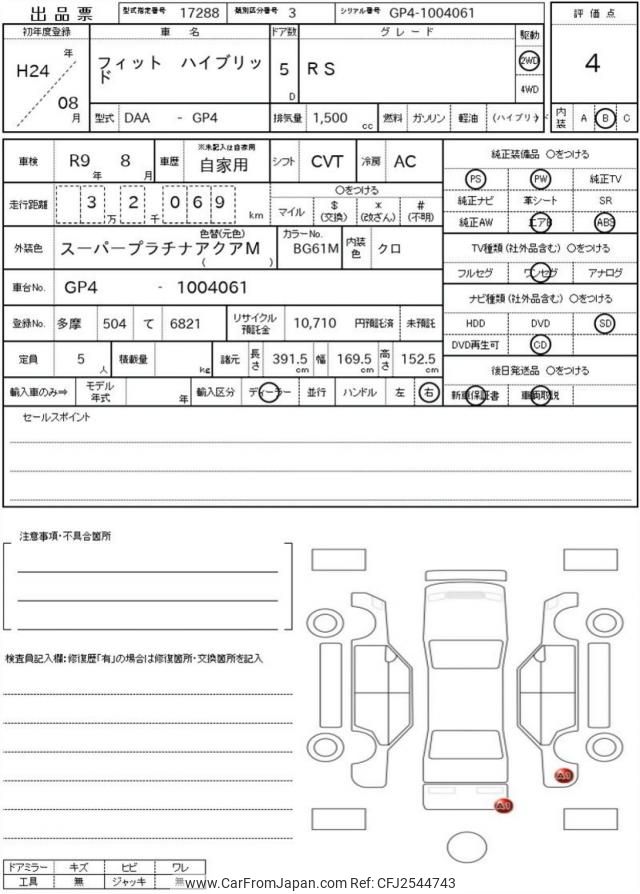 出品票 型式指定番号 17288 類別区分番号 3 シリアル番号 GP4-1004061
初年度登録 車名 ドア数 グレード 駆動 評価点
H24 年 08 月
フィット ハイブリッド
5 D
RS
2WD
4WD
4
型式 DAA - GP4 排気量 1,500 cc 燃料 ガソリン 軽油 (ハイブリッド 内装 A B C
車検 R9 年 8 月 車歴 ※未記入は自家用 自家用 シフト CVT 冷房 AC
純正装備品 ○をつける
PS PW 純正TV
走行距離 3 万 2 千 069 km ○をつける
マイル $(交換) *(改ざん) #(不明)
純正ナビ 革シート SR
純正AW エアB ABS
外装色 色替(元色) スーパープラチナアクアM ( ) カラーNo. BG61M 内装色 クロ
TV種類(社外品含む) ○をつける
フルセグ ワンセグ アナログ
車台No. GP4 - 1004061
ナビ種類(社外品含む) ○をつける
登録No. 多摩 504 て 6821 リサイクル預託金 10,710 円預託済 未預託
HDD DVD SD
DVD再生可 CD
定員 5 人 積載量 kg 諸元 長さ 391.5 cm 幅 169.5 cm 高さ 152.5 cm
後日発送品 ○をつける
輸入車のみ⇒ モデル年式 年 輸入区分 ディーラー 並行 ハンドル 左 右
新車保証書 車両取説
セールスポイント
注意事項・不具合箇所
検査員記入欄:修復歴「有」の場合は修復箇所・交換箇所を記入
A1
A1
ドアミラー キズ ヒビ ワレ
工具 無 ジャッキ 無
www.CarFromJapan.com Ref: CFJ2544743